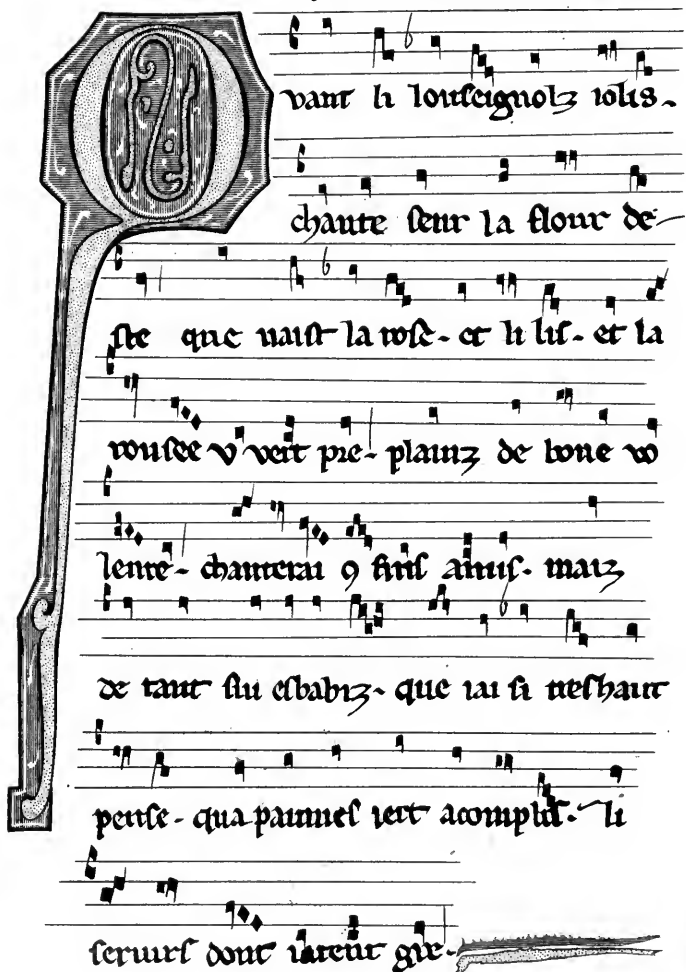 Quant li lousseignolz iolis.
chante seur la flour de-
ste que naist la rose. et li lis. et la
rousee v vert pre. plainz de bone vo
lente. chanterai 9 fins amis. maiz
de tant sui esbahiz. que iai si treshaut
pense. qua painnes iert acomplis. li
seruirs dont iatent gre.